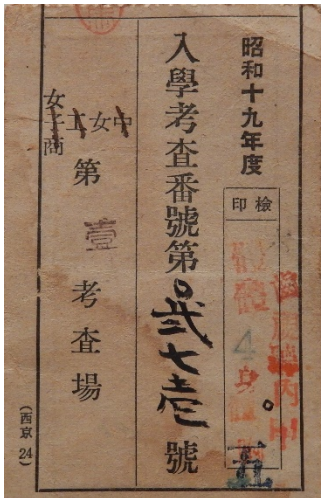 昭和十九年度
檢印
入學考査番號第〇弐七壱號
中女
女子商
第壹考査場
(西京24)